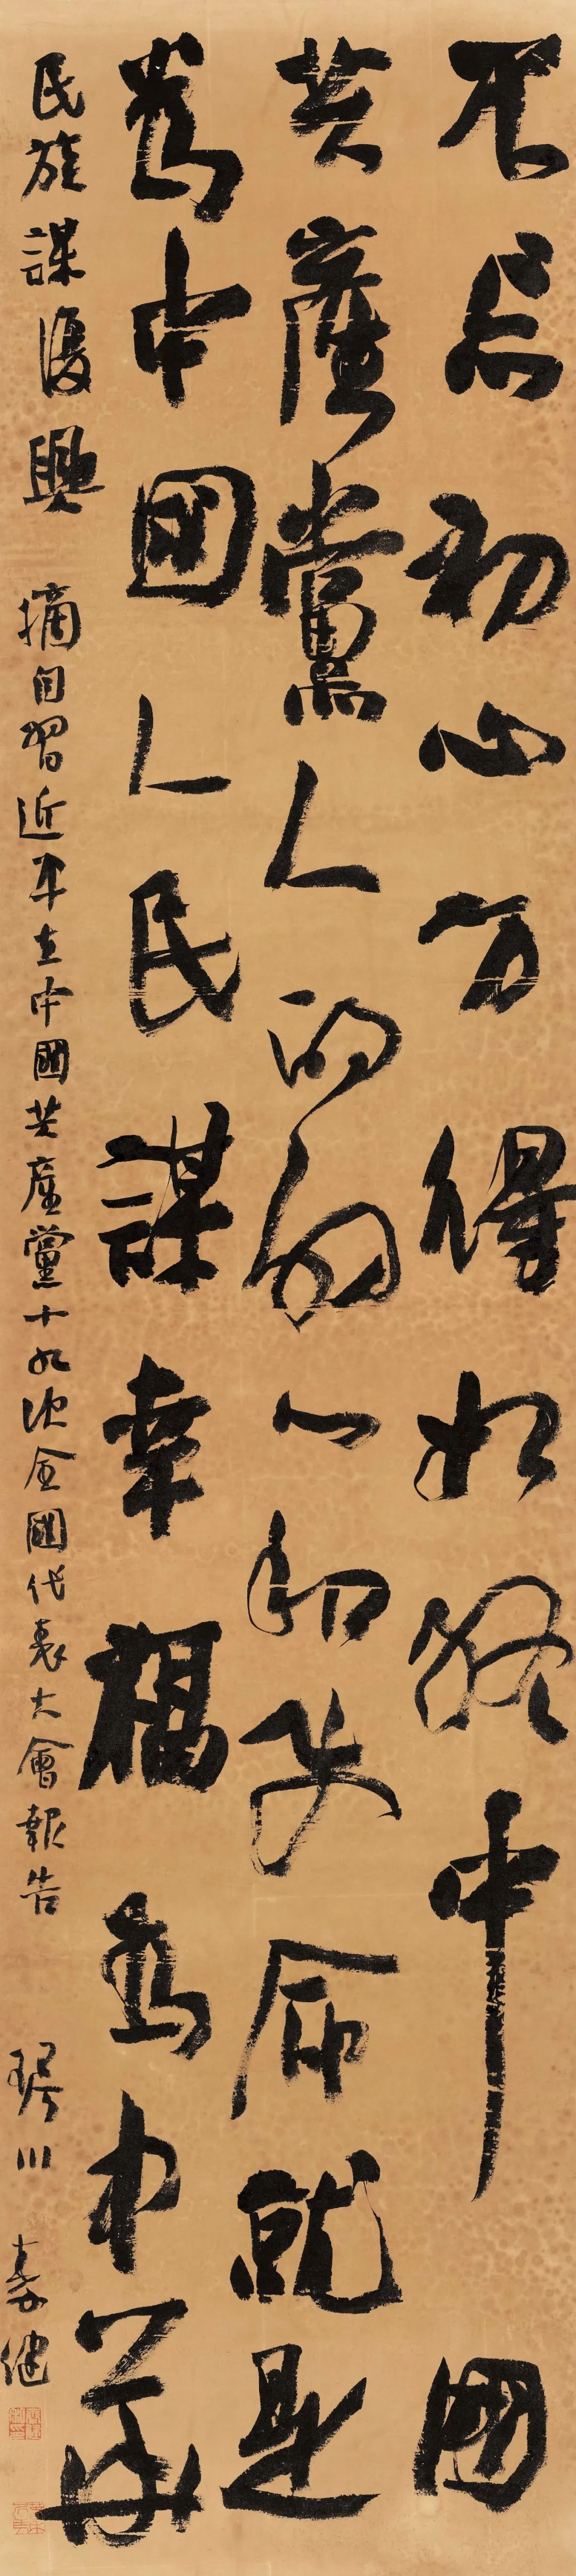 不忘初心方得始終中國
共產黨人的初心和使命就是
為中國人民謀幸福為中華
民族謀復興 摘自習近平在中國共產黨十九次全國代表大會報告 川 健